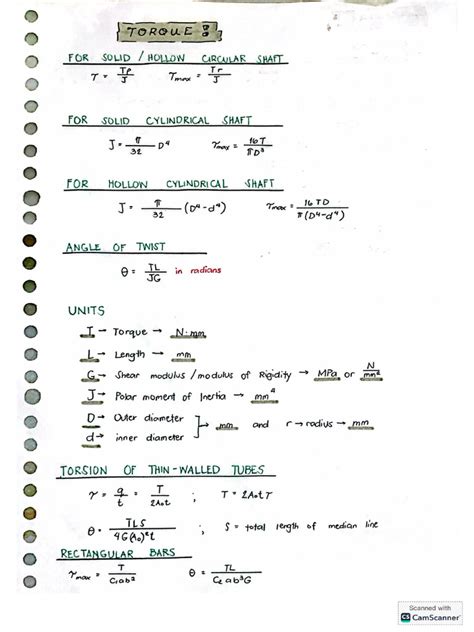 TORQUE :
FOR SOLID / HOLLOW CIRCULAR SHAFT
τ = Tρ/J   τmax = Tr/J
FOR SOLID CYLINDRICAL SHAFT
J = π/32 D⁴   τmax = 16T/πD³
FOR HOLLOW CYLINDRICAL SHAFT
J = π/32 (D⁴-d⁴)   τmax = 16TD/π(D⁴-d⁴)
ANGLE OF TWIST
θ = TL/JG in radians
UNITS
T → Torque → N·mm
L → Length → mm
G → Shear modulus / modulus of Rigidity → MPa or N/mm²
J → Polar moment of Inertia → mm⁴
D → Outer diameter
d → inner diameter → mm and r → radius → mm
TORSION OF THIN-WALLED TUBES
τ = q/t = T/2A₀t ; T = 2A₀tτ
θ = TLS/4G(A₀)²t ; S = total length of median line
RECTANGULAR BARS
τmax = T/C₁ab²   θ = TL/C₂ab³G
Scanned with
CS CamScanner